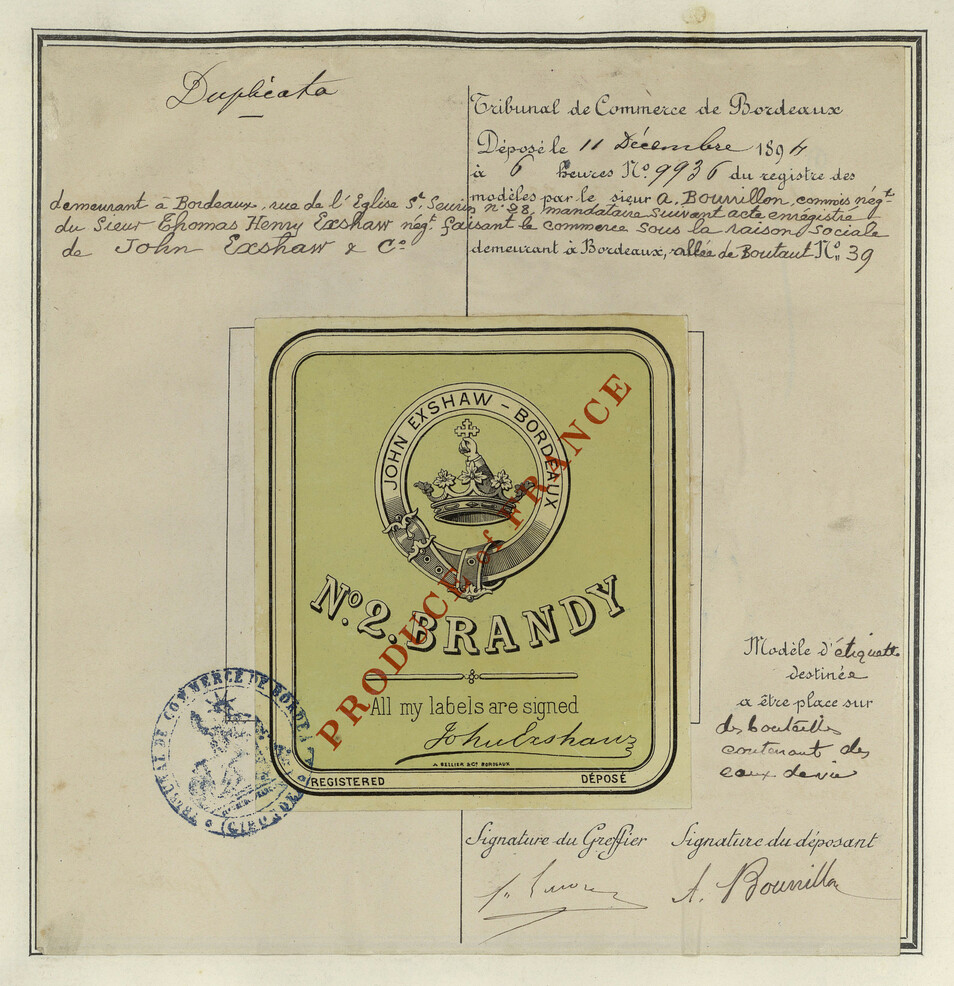 Duplicata
Tribunal de Commerce de Bordeaux
Déposé le 11 Décembre 1894
à 6 heures No. 9936 du registre des
modèles par le sieur A. Bourrillon, commis négt.
demeurant à Bordeaux, rue de l'Eglise St. Seurin no. 98, mandataire suivant acte enregistré
du Sieur Thomas Henry Exshaw négt. faisant le commerce sous la raison sociale
de John Exshaw & Co.
demeurant à Bordeaux, allée de Boutaut No. 39
JOHN EXSHAW - BORDEAUX
PRODUCE of FRANCE
No. 2. BRANDY
All my labels are signed
John Exshaw
A BELLIER & Co BORDEAUX
REGISTERED
DÉPOSÉ
Modèle d'étiquette
destinée
a être place sur
des bouteilles
contenant des
eaux de vie
TRIBUNAL DE COMMERCE DE BORDEAUX
(GIRONDE)
Signature du Greffier
Signature du déposant
A. Bourrillon